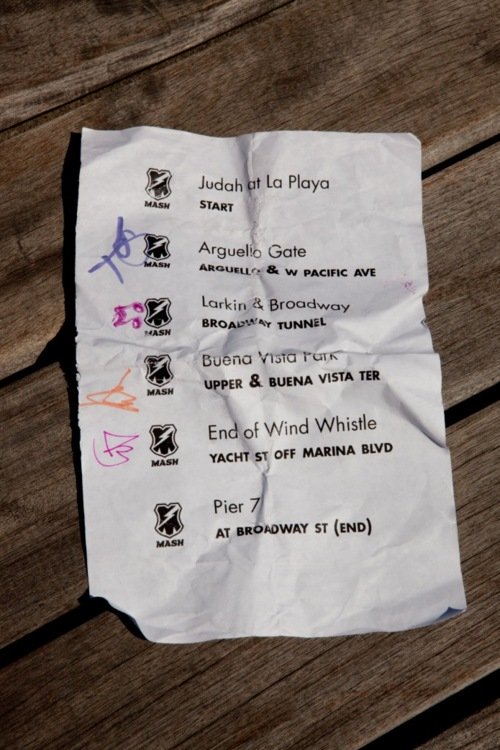 Judah at La Playa
START
MASH
Arguello Gate
ARGUELLO & W PACIFIC AVE
MASH
Larkin & Broadway
BROADWAY TUNNEL
MASH
Buena Vista Park
UPPER & BUENA VISTA TER
MASH
End of Wind Whistle
YACHT ST OFF MARINA BLVD
MASH
Pier 7
AT BROADWAY ST (END)
MASH